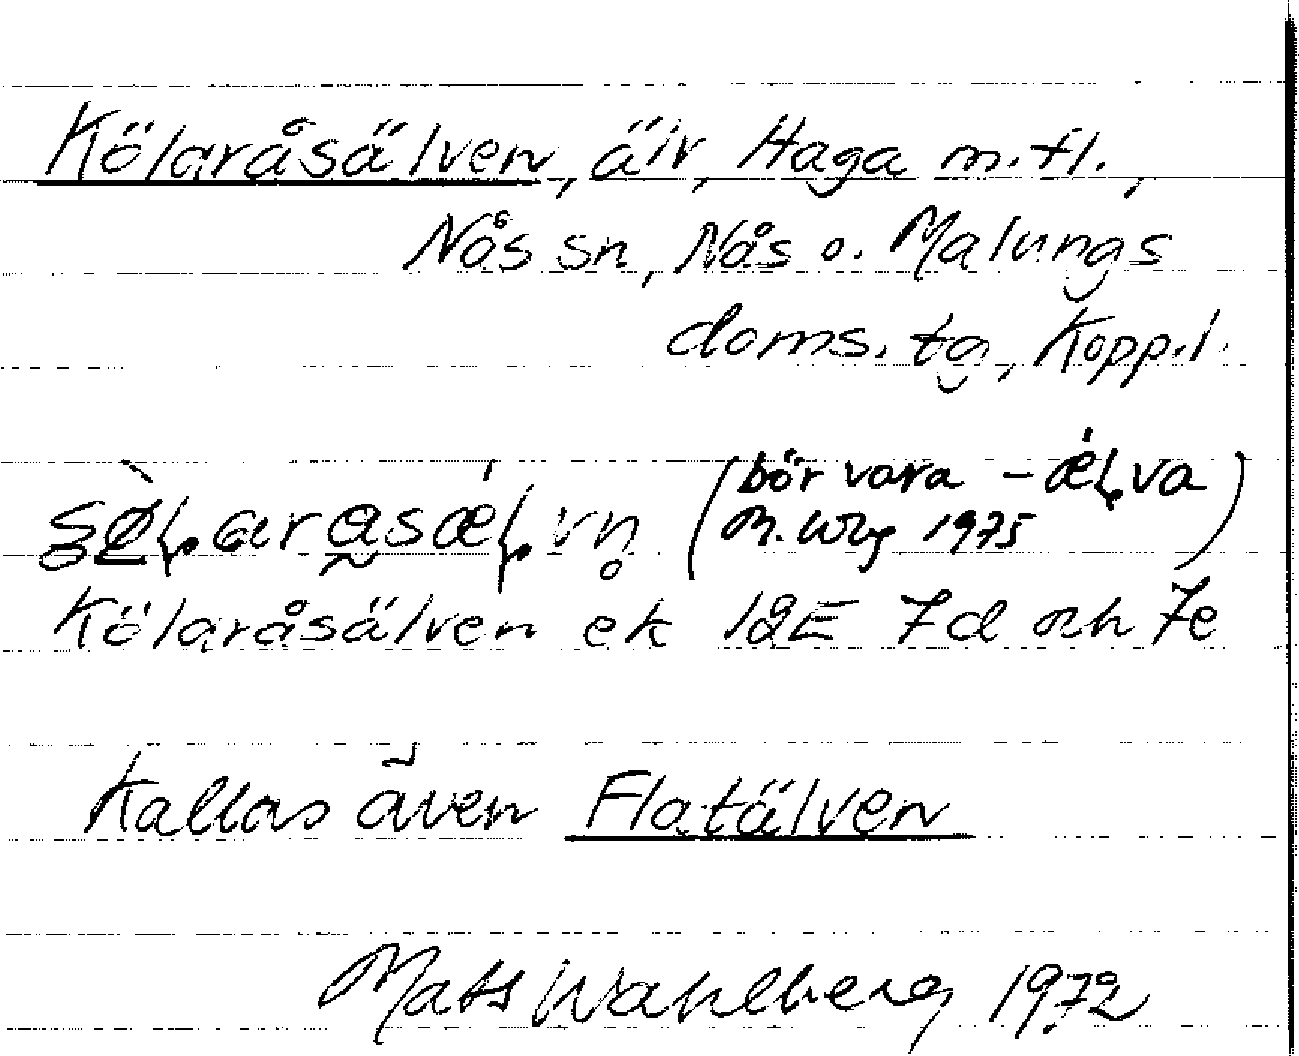 Kölaråsälven, älv, Haga m.fl.,
Nås sn, Nås o. Malungs
doms. tg, Kopp.l.
(bör vara -
M. Wbg 1975)
Kölaråsälven ek 12E 7d och 7e
Kallas även Flatälven
Mats Wahlberg 1972